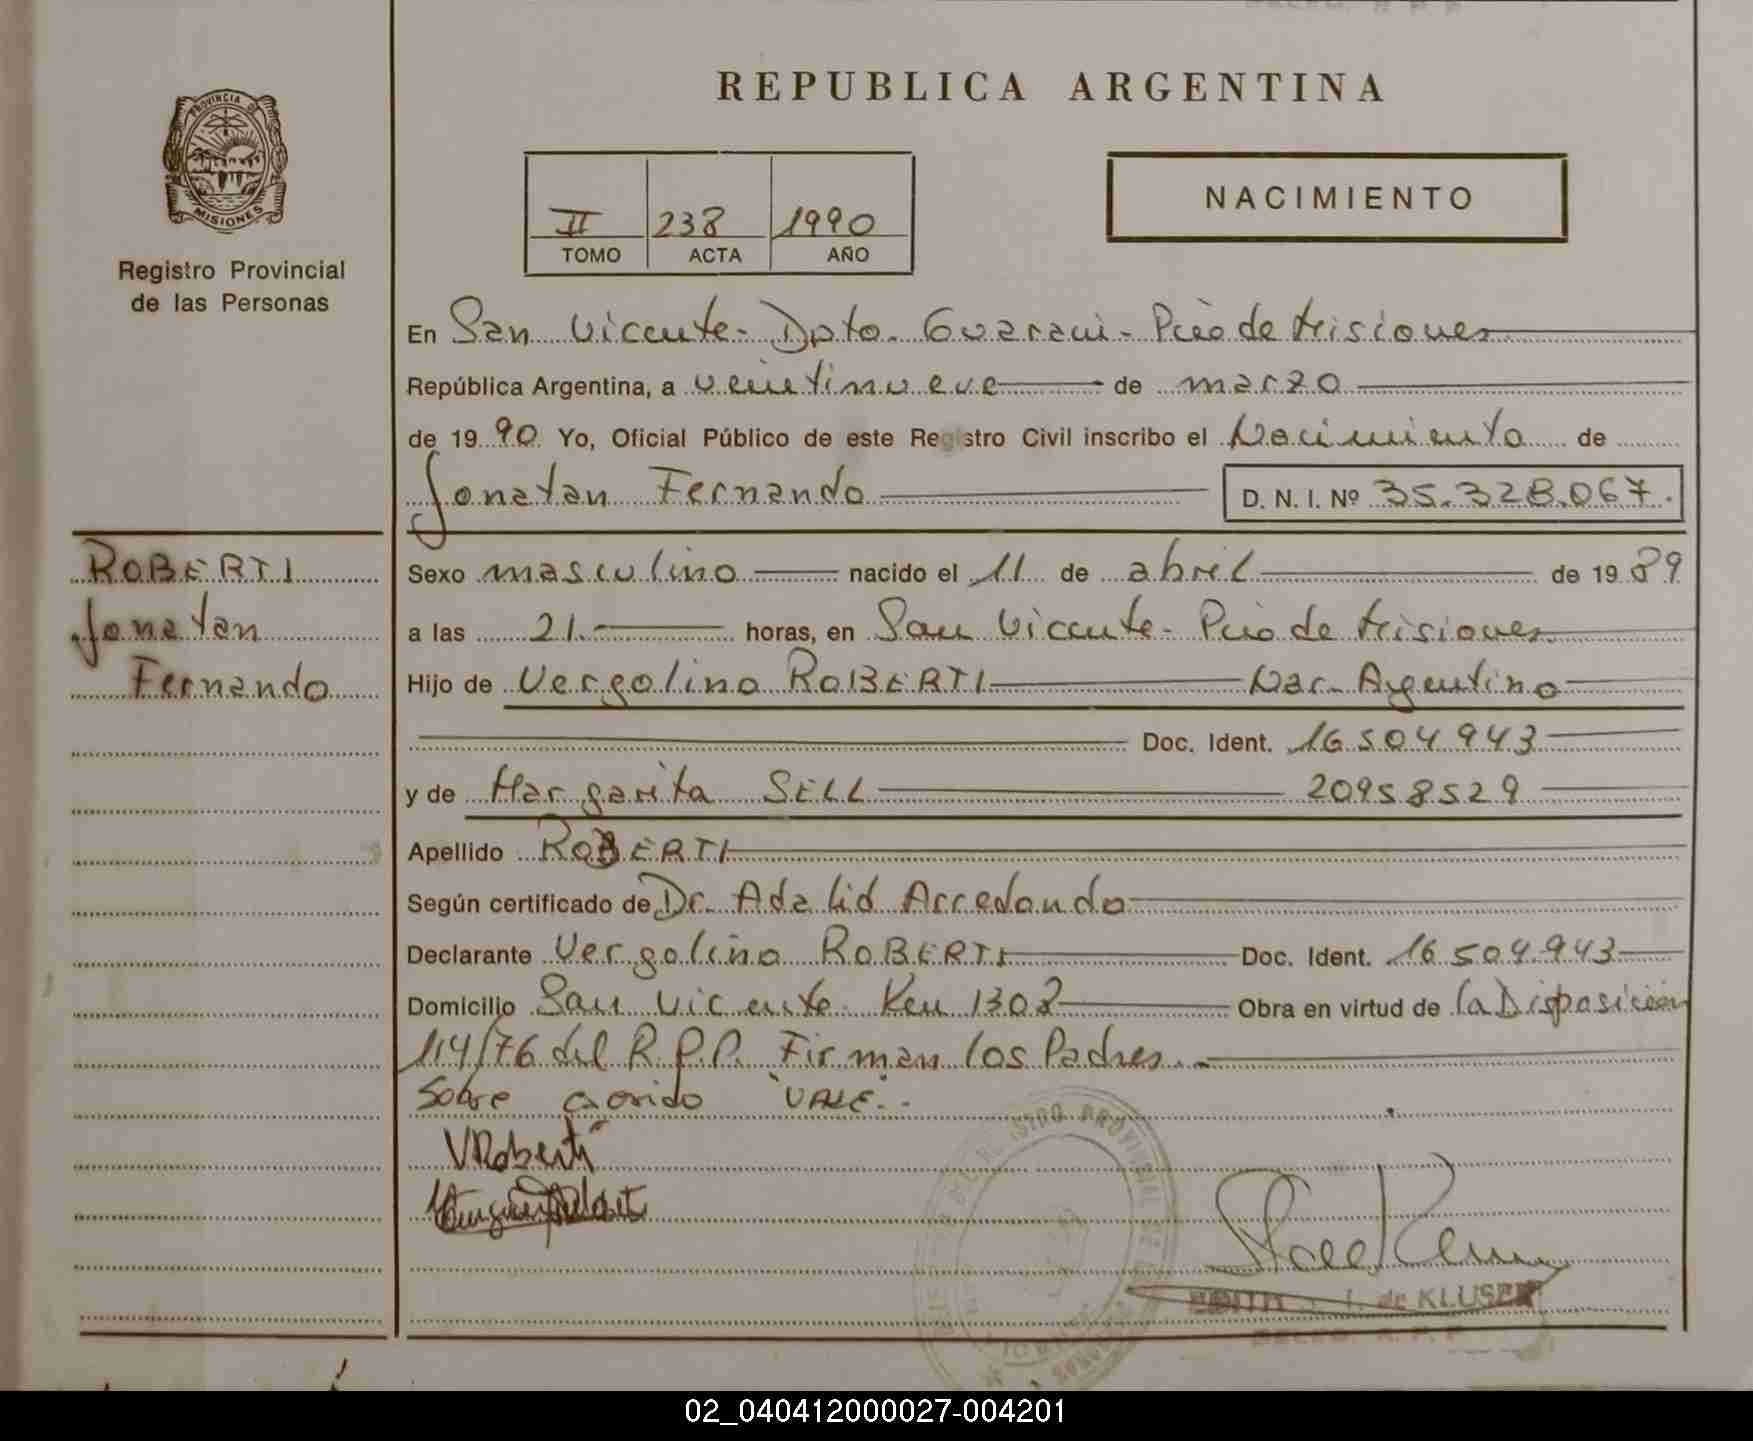 REPUBLICA ARGENTINA
PROVINCIA DE
MISIONES
Registro Provincial
de las Personas
II 238 1990
TOMO ACTA AÑO
NACIMIENTO
En San Vicente - Dpto. Guarani - Pcia de Misiones
República Argentina, a veintinueve de marzo
de 1990 Yo, Oficial Público de este Registro Civil inscribo el Nacimiento de
Jonatan Fernando D. N. I. Nº 35.328.067.
ROBERTI
Jonatan
Fernando
Sexo masculino nacido el 11 de abril de 1989
a las 21.- horas, en San Vicente - Pcia de Misiones
Hijo de Vergolino ROBERTI Nac. Argentino
Doc. Ident. 16504943
y de Margarita SELL 20958529
Apellido ROBERTI
Según certificado de Dr. Adalid Arredondo
Declarante Vergolino ROBERTI Doc. Ident. 16504943
Domicilio San Vicente - Km 1302 Obra en virtud de la Disposición
114/76 del R.P.P. Firman los Padres.-
Sobre corrido "VALE".-
VRoberti
EDITH de KLUSER
02_040412000027-004201